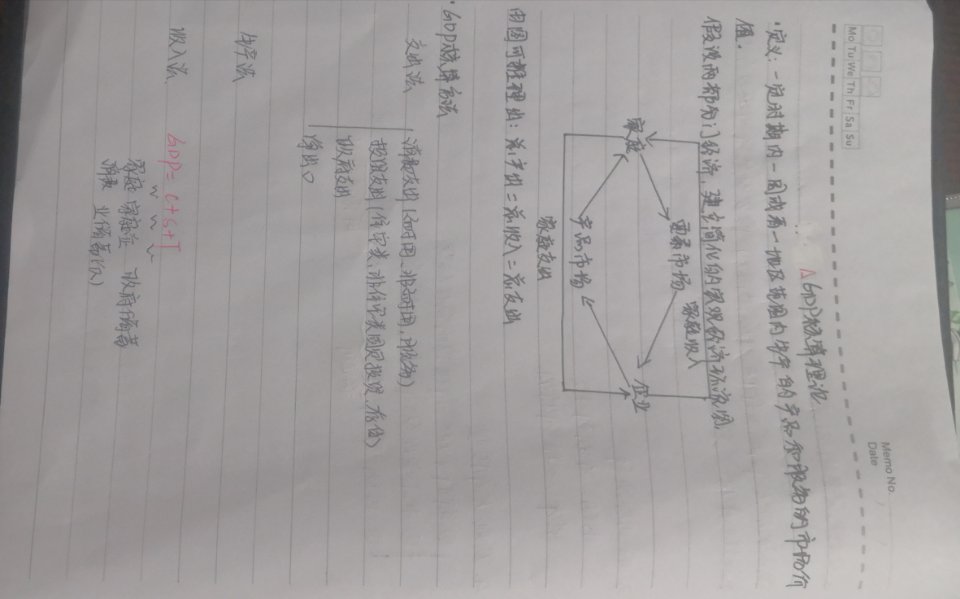 Memo No.
Date
Mo Tu We Th Fr Sa Su
△GDP核算理论
·定义:一定时期内一国或着一地区范围内生产的产品和服务的市场价
值.
假设两部门经济,建立简化的宏观经济环流图.
家庭收入
要素市场
家庭
企业
产品市场
家庭支出
由图可推理出:总产值=总收入=总支出
·GDP核算方法
支出法
消费支出(耐用,非耐用,服务)
投资支出(住宅类,非住宅类固定投资,存货)
政府支出
净出口
生产法
收入法
GDP=C+S+T
家庭 家庭企 政府储蓄
消费 业储蓄(认)